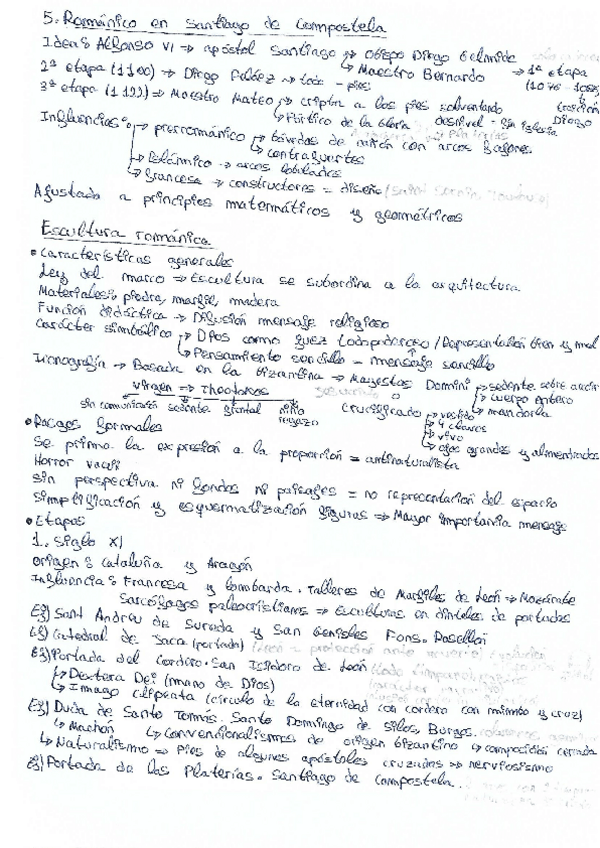 5. Románico en Santiago de Compostela
Idea: Alfonso VI → apóstol Santiago → Obispo Diego Gelmírez
↳ Maestro Bernardo → 1ª etapa
2ª etapa (1100) → Diego Peláez → todo - pies
3ª etapa (1122) → Maestro Mateo → cripta a los pies solventando
↳ Pórtico de la Gloria desnivel
Influencias: → prerrománico → bóvedas de cañón con arcos fajones
↳ contrafuertes
↳ Islámico → arcos lobulados
↳ francesa → constructores = diseño
Ajustada a principios matemáticos y geométricos
Escultura románica
• Características generales
Ley del marco → Escultura se subordina a la arquitectura
Materiales: piedra, marfil, madera
Función didáctica → Difusión mensaje religioso
Carácter simbólico → Dios como juez todopoderoso / Representación bien y mal
↳ Pensamiento sencillo - mensaje sencillo
Iconografía → Basada en la bizantina → Mayestas Domini → sedente sobre
↳ cuerpo entero
↳ mandorla
Virgen → Theotokos
sin comunicación sedente frontal niño regazo
Crucificado → vestido
↳ 4 clavos
↳ vivo
↳ ojos grandes y almendrados
• Rasgos formales
Se prima la expresión a la proporción = antinaturalista
Horror vacui
Sin perspectiva ni fondos ni paisajes = no representación del espacio
Simplificación y esquematización figuras → Mayor importancia mensaje
• Etapas
1. Siglo XI
Origen: Cataluña y Aragón
Influencia: Francesa y lombarda. Talleres de Marfiles de León → Mozárabe
Sarcófagos paleocristianos → Esculturas en dinteles de portadas
Ej) Sant Andreu de Sureda y San Genisles Fons. Rosellón
Ej) Catedral de Jaca (portada)
Ej) Portada del Cordero. San Isidoro de León
↳ Dextera Dei (mano de Dios)
↳ Imago clipeata (círculo de la eternidad con cordero con nimbo y cruz)
Ej) Duda de Santo Tomás. Santo Domingo de Silos, Burgos.
↳ Machón ↳ Convencionalismos de origen bizantino ↳ composición cerrada
↳ Naturalismo → Pies de algunos apóstoles cruzados → nerviosismo
Ej) Portada de las Platerías. Santiago de Compostela.